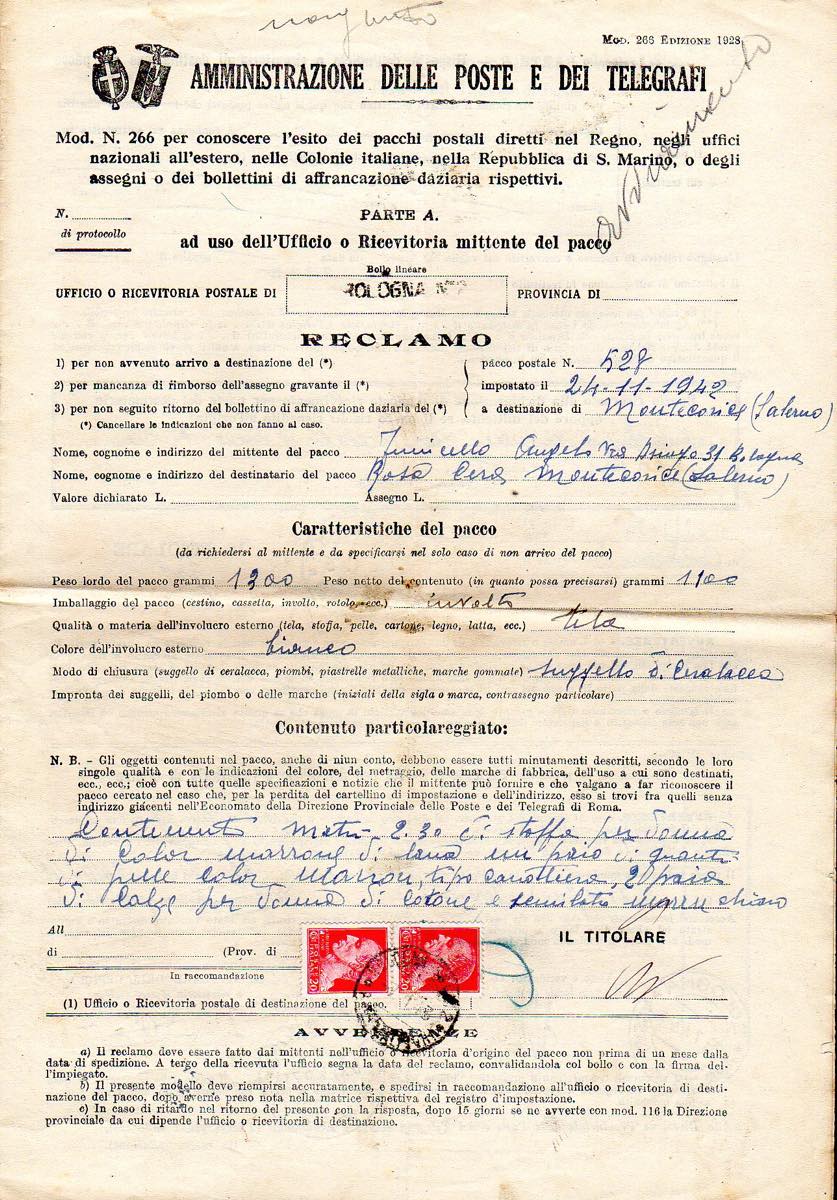 MOD. 266 EDIZIONE 1928
AMMINISTRAZIONE DELLE POSTE E DEI TELEGRAFI
Mod. N. 266 per conoscere l'esito dei pacchi postali diretti nel Regno, negli uffici
nazionali all'estero, nelle Colonie italiane, nella Repubblica di S. Marino, o degli
assegni o dei bollettini di affrancazione daziaria rispettivi.
N.
di protocollo
PARTE A.
ad uso dell'Ufficio o Ricevitoria mittente del pacco
Bollo lineare
UFFICIO O RICEVITORIA POSTALE DI BOLOGNA PROVINCIA DI
RECLAMO
1) per non avvenuto arrivo a destinazione del (*) pacco postale N. 528
2) per mancanza di rimborso dell'assegno gravante il (*) impostato il 24-11-1942
3) per non seguito ritorno del bollettino di affrancazione daziaria del (*) a destinazione di Montecorice (Salerno)
(*) Cancellare le indicazioni che non fanno al caso.
Nome, cognome e indirizzo del mittente del pacco Angelo Via 31 Bologna
Nome, cognome e indirizzo del destinatario del pacco Rosa Cera Montecorice (Salerno)
Valore dichiarato L. Assegno L.
Caratteristiche del pacco
(da richiedersi al mittente e da specificarsi nel solo caso di non arrivo del pacco)
Peso lordo del pacco grammi 1300 Peso netto del contenuto (in quanto possa precisarsi) grammi 1100
Imballaggio del pacco (cestino, cassetta, involto, rotolo, ecc.) involto
Qualità o materia dell'involucro esterno (tela, stoffa, pelle, cartone, legno, latta, ecc.) tela
Colore dell'involucro esterno bianco
Modo di chiusura (suggello di ceralacca, piombi, piastrelle metalliche, marche gommate) suggello di Ceralacca
Impronta dei suggelli, del piombo o delle marche (iniziali della sigla o marca, contrassegno particolare)
Contenuto particolareggiato:
N. B. - Gli oggetti contenuti nel pacco, anche di niun conto, debbono essere tutti minutamenti descritti, secondo le loro
singole qualità e con le indicazioni del colore, del metraggio, delle marche di fabbrica, dell'uso a cui sono destinati,
ecc., ecc.; cioè con tutte quelle specificazioni e notizie che il mittente può fornire e che valgano a far riconoscere il
pacco cercato nel caso che, per la perdita del cartellino di impostazione e dell'indirizzo, esso si trovi fra quelli senza
indirizzo giacenti nell'Economato della Direzione Provinciale delle Poste e dei Telegrafi di Roma.
Contenente metri 2.30 di stoffa per donna
di color marrone di lana un paio di guanti
di pelle color marron, tipo canottiera, 20 paia
di calze per donna di cotone e semilata marrn chiaro
All
di (Prov. di
IL TITOLARE
In raccomandazione
(1) Ufficio o Ricevitoria postale di destinazione del pacco.
AVVERTENZE
a) Il reclamo deve essere fatto dai mittenti nell'ufficio o ricevitoria d'origine del pacco non prima di un mese dalla
data di spedizione. A tergo della ricevuta l'ufficio segna la data del reclamo, convalidandola col bollo e con la firma del-
l'impiegato.
b) Il presente modello deve riempirsi accuratamente, e spedirsi in raccomandazione all'ufficio o ricevitoria di desti-
nazione del pacco, dopo averne preso nota nella matrice rispettiva del registro d'impostazione.
c) In caso di ritardo nel ritorno del presente con la risposta, dopo 15 giorni se ne avverte con mod. 116 la Direzione
provinciale da cui dipende l'ufficio o ricevitoria di destinazione.